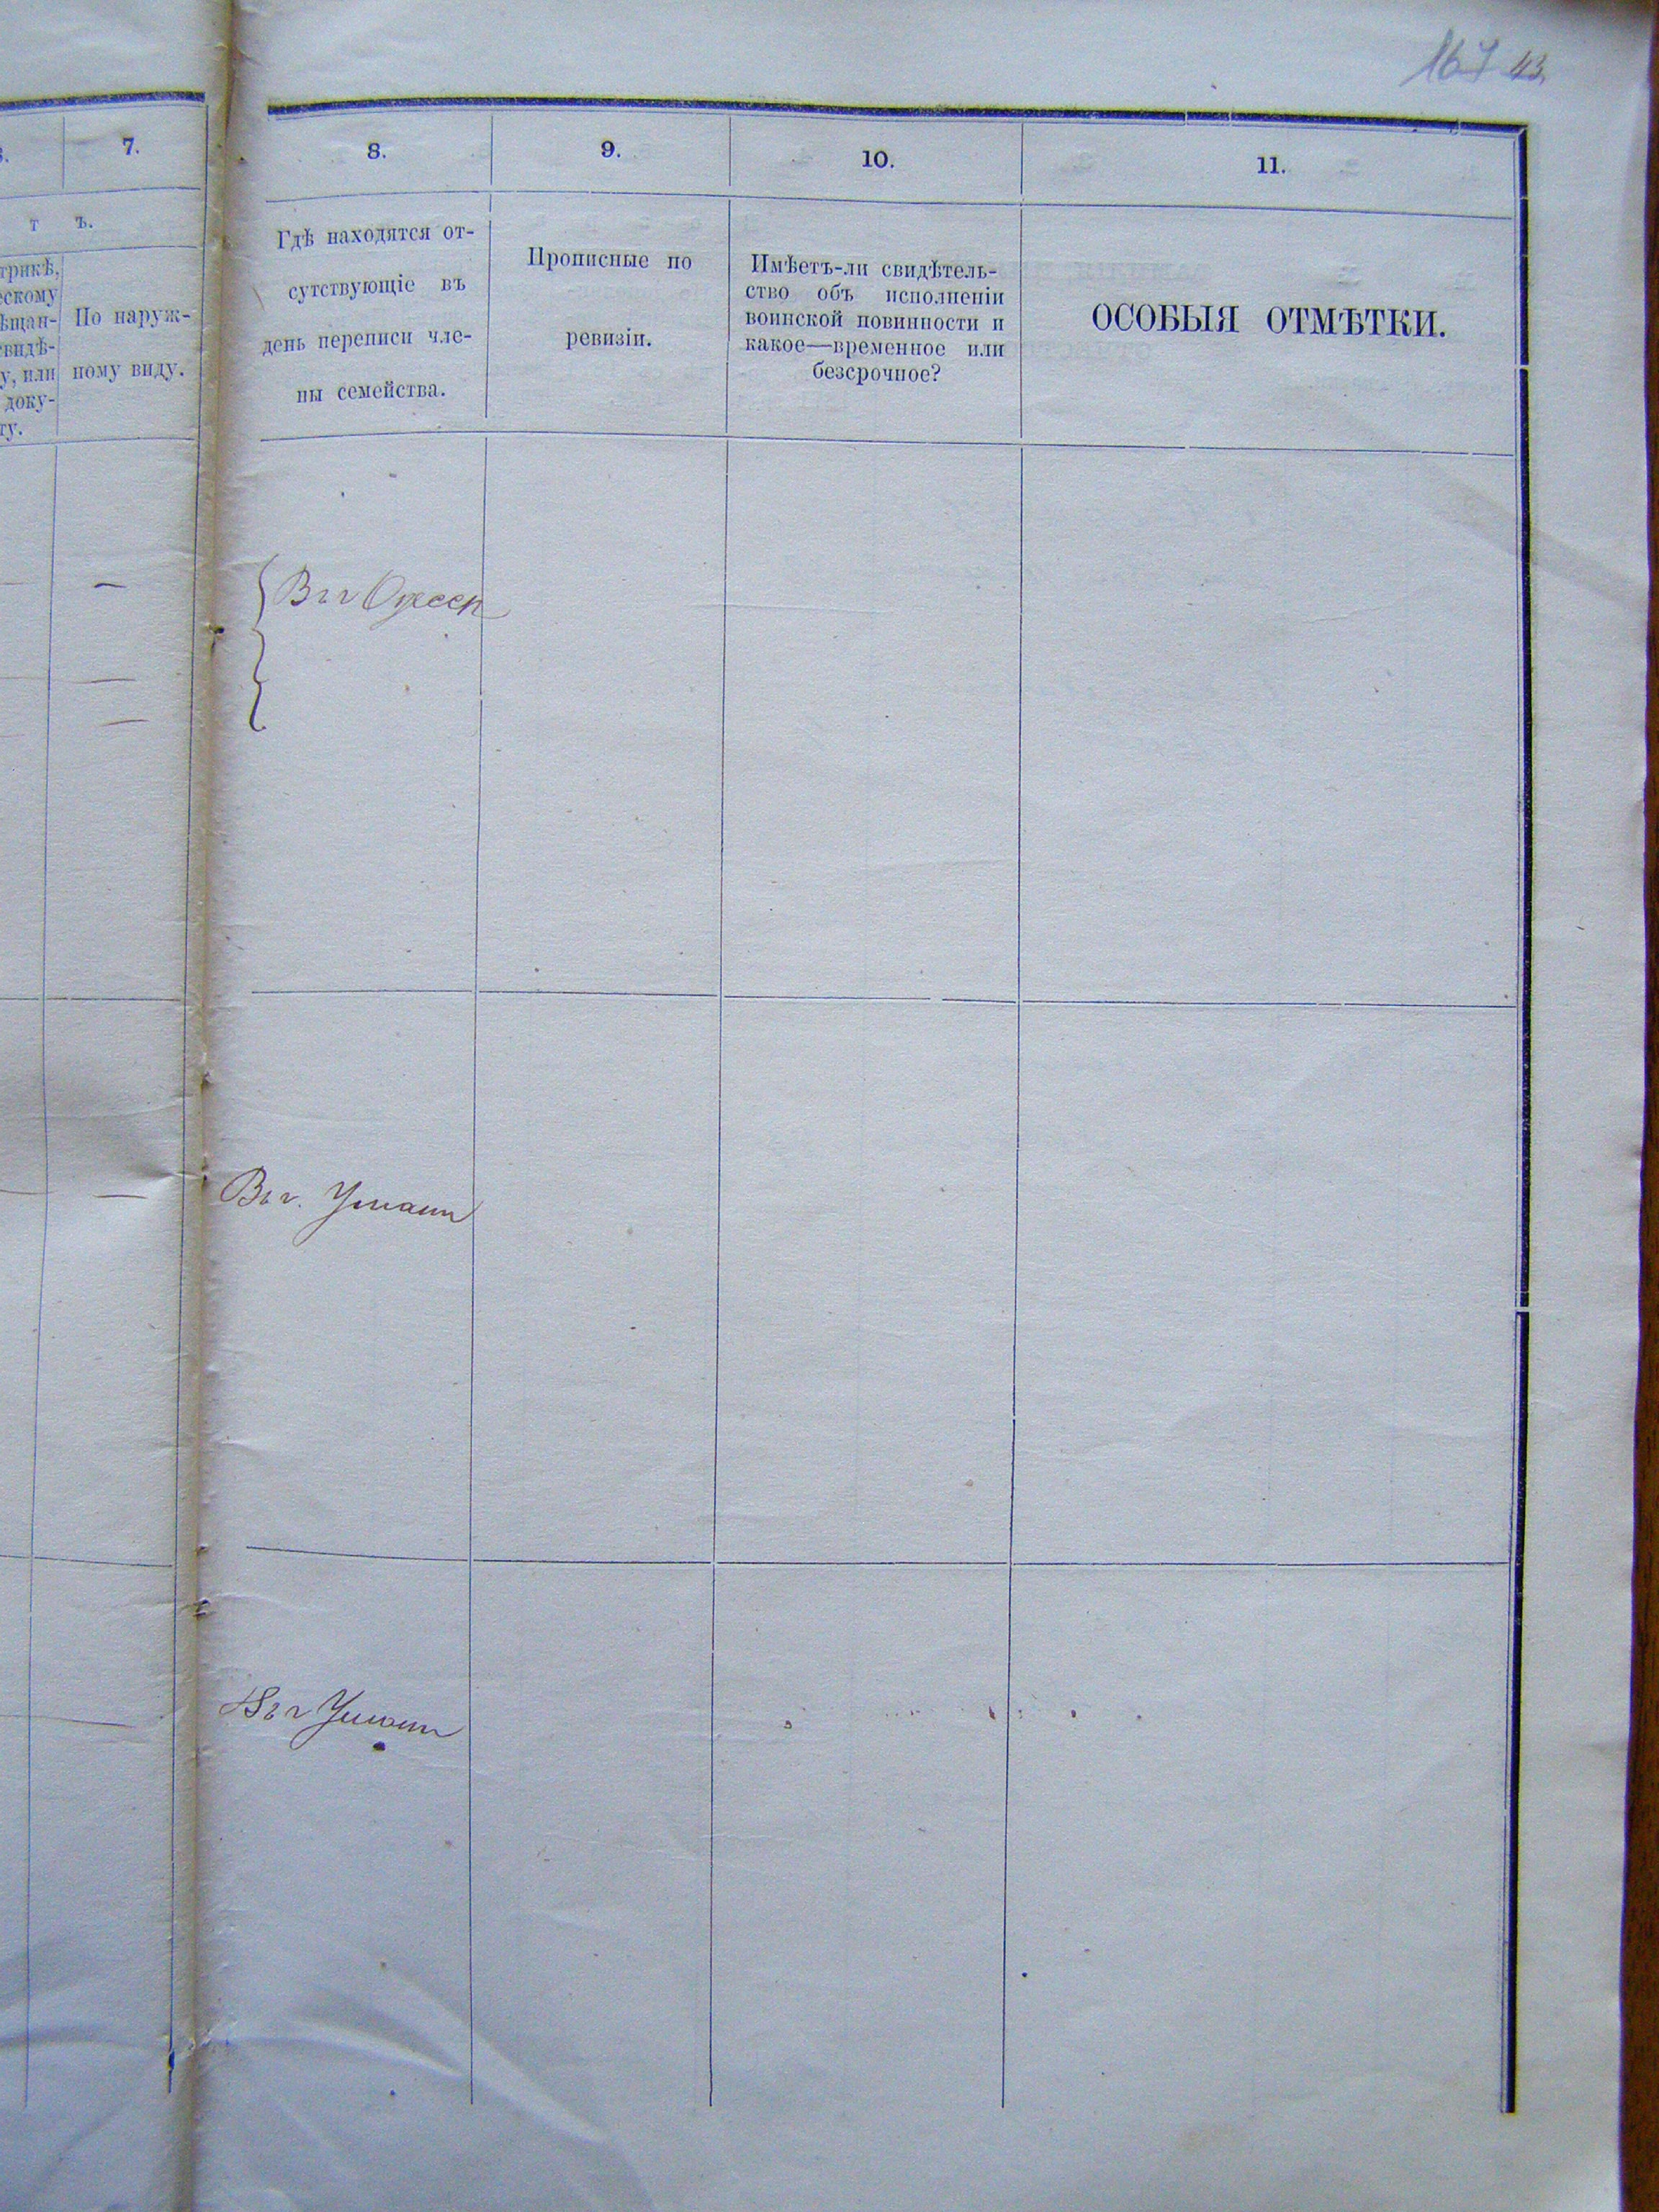 167 43.
7.
т ъ.
трикѣ,
ескому
ѣщан-
свидѣ-
у, или
доку-
ту.
По наруж-
ному виду.
8.
9.
10.
11.
Гдѣ находятся от-
сутствующіе въ
день переписи чле-
ны семейства.
Прописные по
ревизіи.
Имѣетъ-ли свидѣтель-
ство объ исполненіи
воинской повинности и
какое—временное или
безсрочное?
ОСОБЫЯ ОТМѢТКИ.
Въ г Одессѣ
Въ г. Умани
Въ г Умани